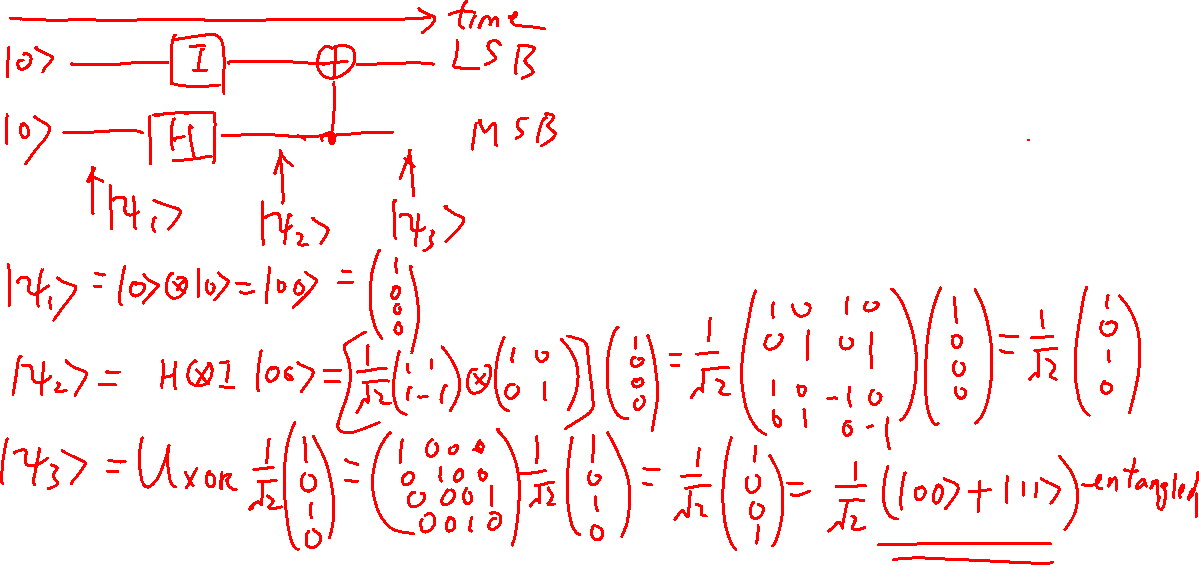 time
|0> I LSB
|0> H MSB
|ψ₁> |ψ₂> |ψ₃>
|ψ₁> = |0>⊗|0> = |00> = (1 0 0 0)
|ψ₂> = H⊗I |00> = [1/√2 (1 1; 1 -1) ⊗ (1 0; 0 1)] (1 0 0 0) = 1/√2 (1 0 1 0; 0 1 0 1; 1 0 -1 0; 0 1 0 -1) (1 0 0 0) = 1/√2 (1 0 1 0)
|ψ₃> = U_XOR 1/√2 (1 0 1 0) = (1 0 0 0; 0 1 0 0; 0 0 0 1; 0 0 1 0) 1/√2 (1 0 1 0) = 1/√2 (1 0 0 1) = 1/√2 (|00> + |11>) - entangled